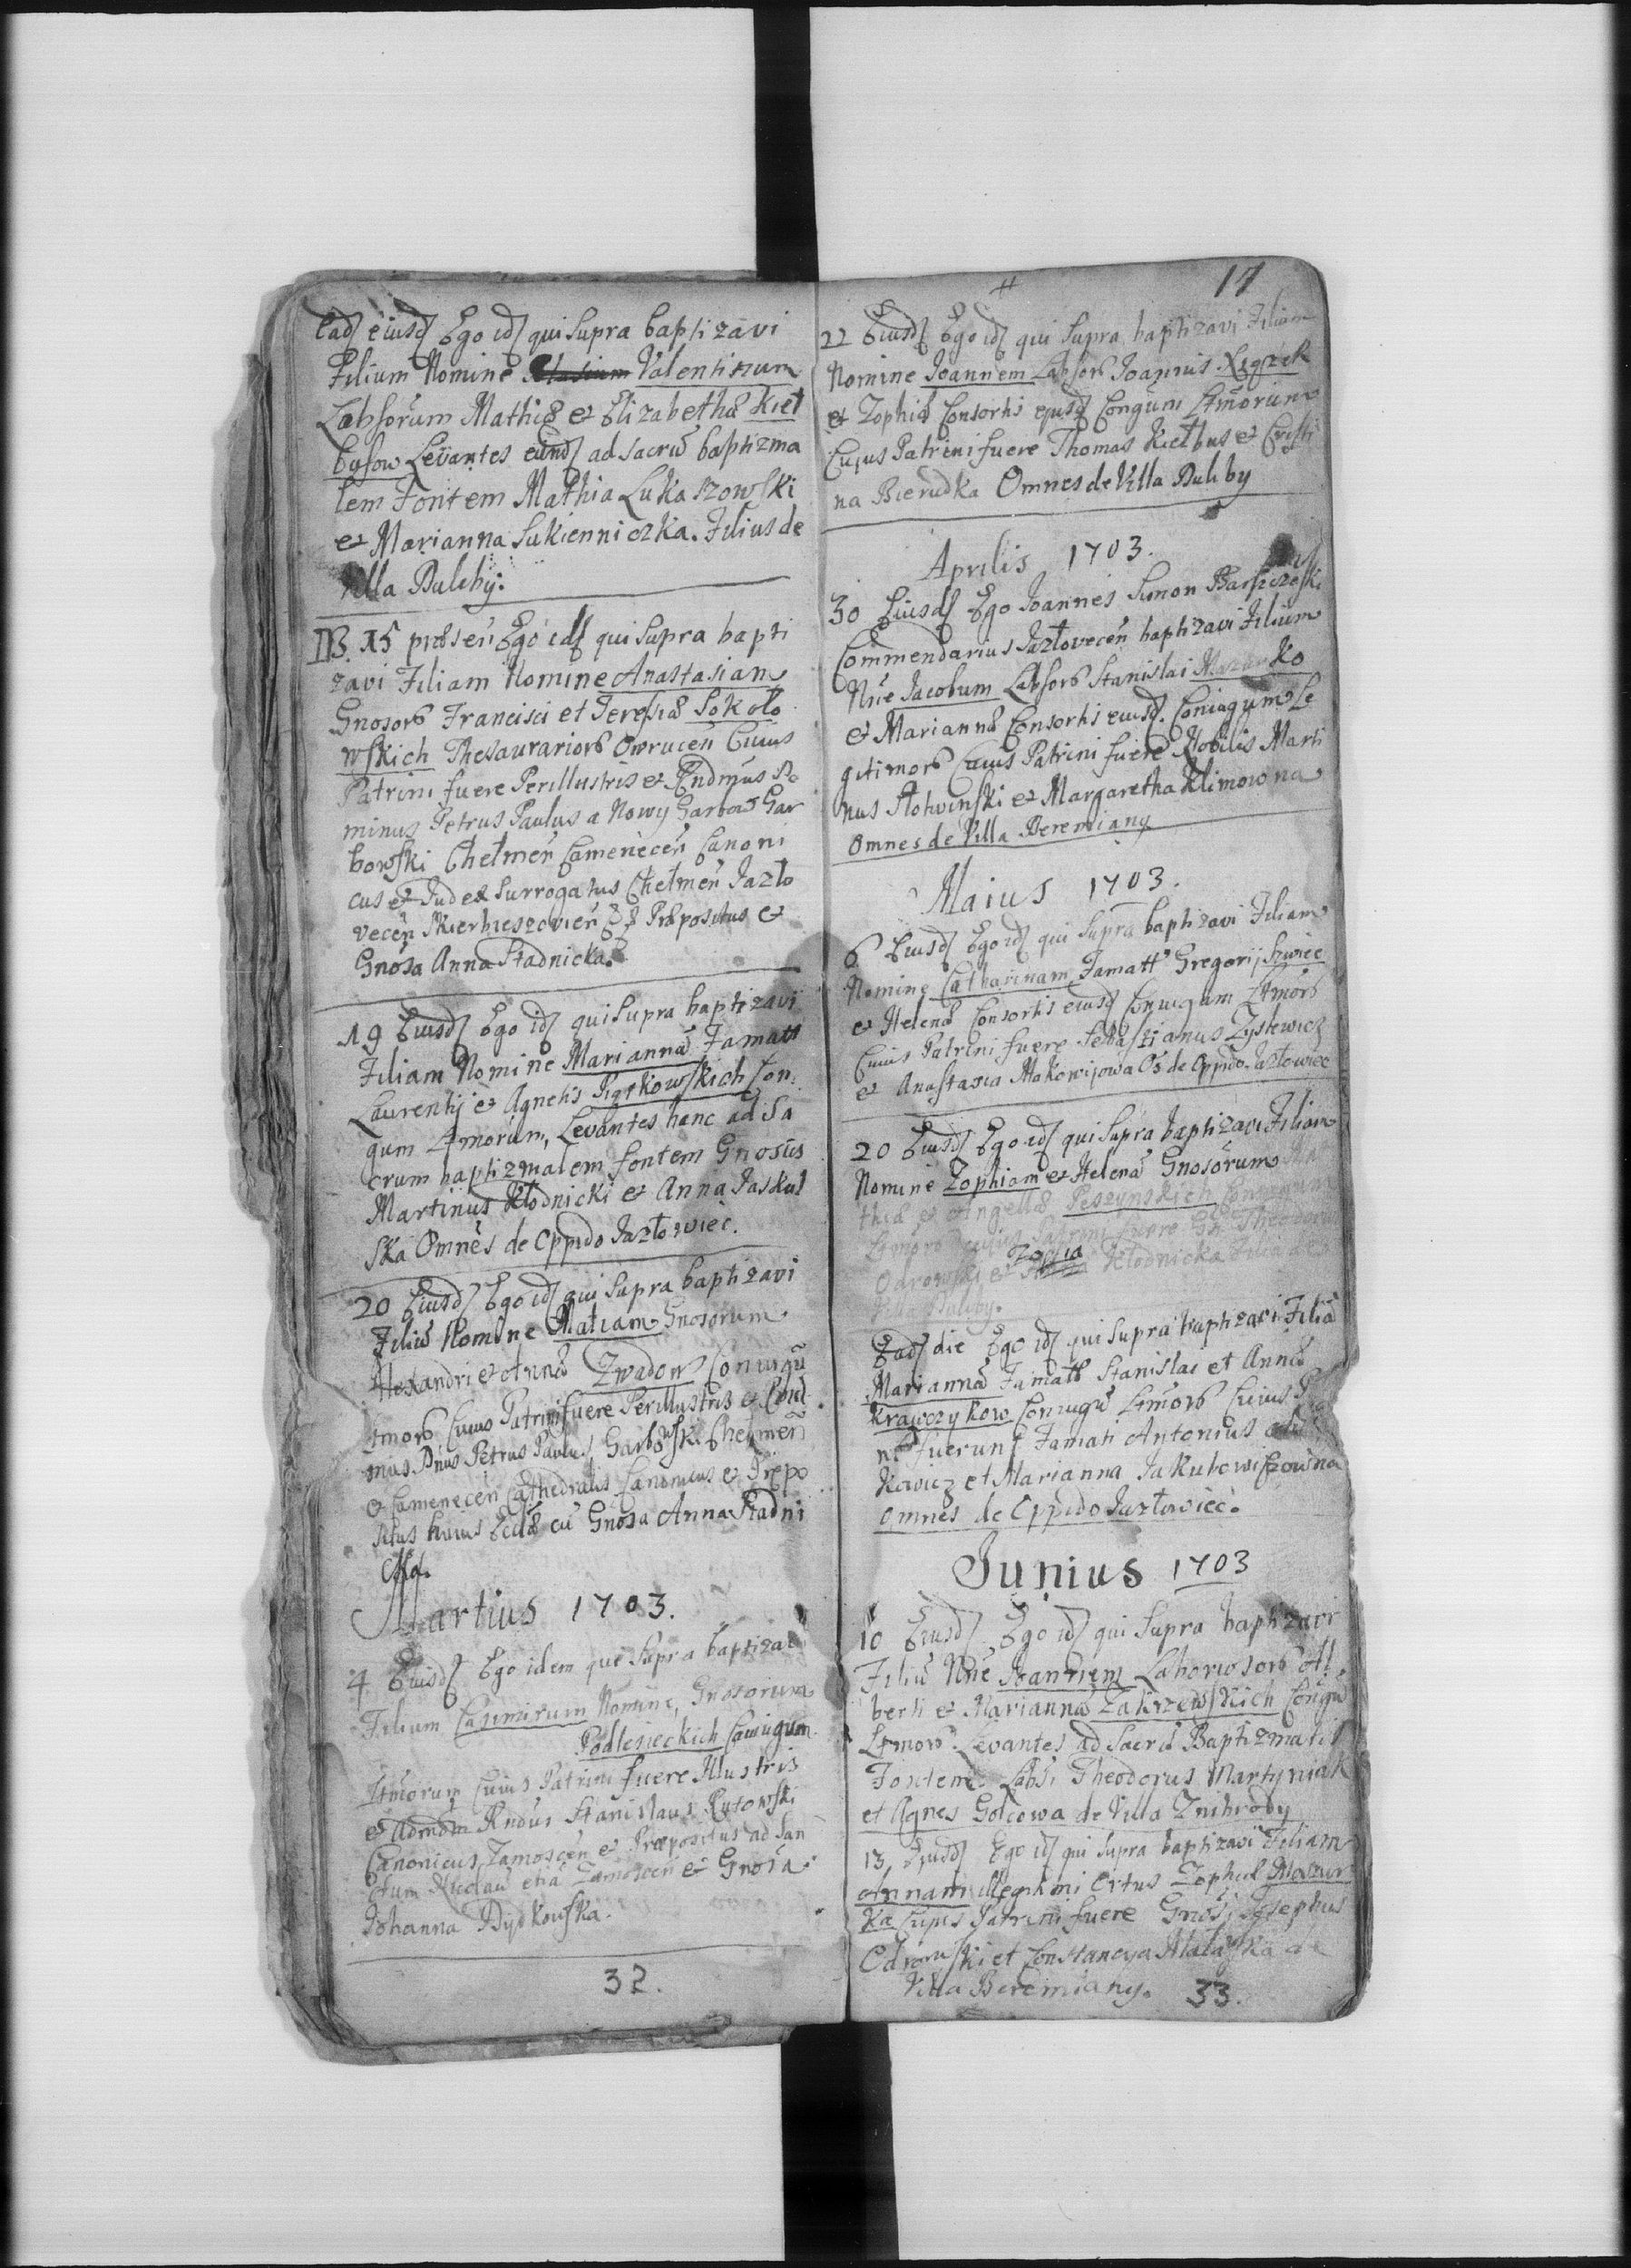 Ead ejusd Ego id qui supra baptizavi
Filium Nomine Valentinum
Labsorum Mathiæ et Elizabethæ Kieł
bysow Levantes eund ad sacrū baptizma
lem Fontem Mathia Lukaszowski
et Marianna Sukienniczka. Filius de
Villa Duliby.
15 præsen Ego id qui supra bapti
zavi Filiam Nomine Anastasiam
Gnosorb Francisci et Teresiæ Sokoło
wskich Thesaurariorb Owrucen Cuius
Patrini fuere Perillustris et Rndmus Do
minus Petrus Paulus a Nowy Garbow Gar
bowski Chełmen Camenecen Canoni
cus et Judex Surrogatus Chełmen Jazło
vecen Skierbieszovien Præpositus et
Gnosa Anna Stadnicka.
19 Eiusd Ego id qui supra baptizavi
Filiam Nomine Mariannā Famatt
Laurentij et Agnetis Piątkowskich Con
gum Ltmorum, Levantes hanc ad Sa
crum baptizmalem fontem Gnosus
Martinus Kłodnicki et Anna Jaskul
ska Omnes de Oppido Jazłowiec.
20 Eiusd Ego id qui supra baptizavi
Filiū Nomine Matiam Gnosorum
Alexandri et Annæ Zwadow Coniugū
Ltmorb Cuius Patrini fuere Perillustris et Rnd
mus Dnus Petrus Paulus Garbowski Chełmen
et Camenecen Cathedralis Canonicus et Præpo
situs huius Eccłæ cū Gnosa Anna Stadni
cka.
Martius 1703.
4 Eiusd Ego idem qui supra baptizavi
Filium Casimirum Nomine, Gnosorum
Podlesieckich Coniugum
Ltmorum Cuius Patrini fuere Illustris
et Admdm Rndus Stanislaus Rutowski
Canonicus Zamoscen et Præpositus ad San
ctum Nicolaū etiā Zamoscen et Gnosa
Johanna Dydkowska.
32.
17
22 Eiusd Ego id qui supra baptizavi Filium
Nomine Joannem Labsorb Joannis Xiązek
et Zophiæ Consortis ejusd Congum Ltmorum
Cujus Patrini fuere Thomas Kiełbus et Cristi
na Bierudka Omnes de Villa Duliby
Aprilis 1703.
30 Eiusd Ego Joannes Simon Barszczeski
Commendarius Jazłovecen baptizavi Filium
Nne Jacobum Labsorb Stanislai Mazurko
et Mariannæ Consortis eiusd. Coniugum Le
gitimorb Cuius Patrini fuere Nobilis Marti
nus Słotwinski et Margaretha Klimowna
Omnes de Villa Beremiany
Maius 1703.
6 Eiusd Ego id qui supra baptizavi Filiam
Nomine Catharinam Famatt Gregorij Szwiec
et Helenæ Consortis eiusd Coniugum Ltmorb
Cuius Patrini fuere Sebastianus Zystewicz
et Anastasia Makowijowa Os de Oppido Jazłowiec
20 Eiusd Ego id qui supra baptizavi Filiam
Nomine Zophiam et Helenā Gnosorum Mat
thiæ et Angellæ Peszynskich Coniugum
Ltmorb Cujus Patrini fuere Gn Theodorus
Odrowski et Zofia Kłodnicka Filia de
Villa Duliby.
Ead die Ego id qui supra baptizavi Filiā
Mariannā Famatt Stanislai et Annæ
Krawczykow Coniugū Ltmorb Cuius
ni fuerunt Famati Antonius
kewicz et Marianna Jakubowiczowna
Omnes de Oppido Jazłowiec.
Junius 1703
10 Eiusd Ego id qui supra baptizavi
Filiū Nne Joannem Laboriosorb Al
berti et Mariannæ Zakrzewskich Congū
Ltmorb Levantes ad Sacrū Baptizmatis
Fontem Labsi Theodorus Martyniak
et Agnes Golcowa de Villa Znibrody
13 Ejusd Ego id qui supra baptizavi Filiam
Annam illegitimi Ortus Zophiæ Mazur
ka Cujus Patrini fuere Gnosj Josephus
Odrowski et Constancya Malawska de
Villa Beremiany. 33.